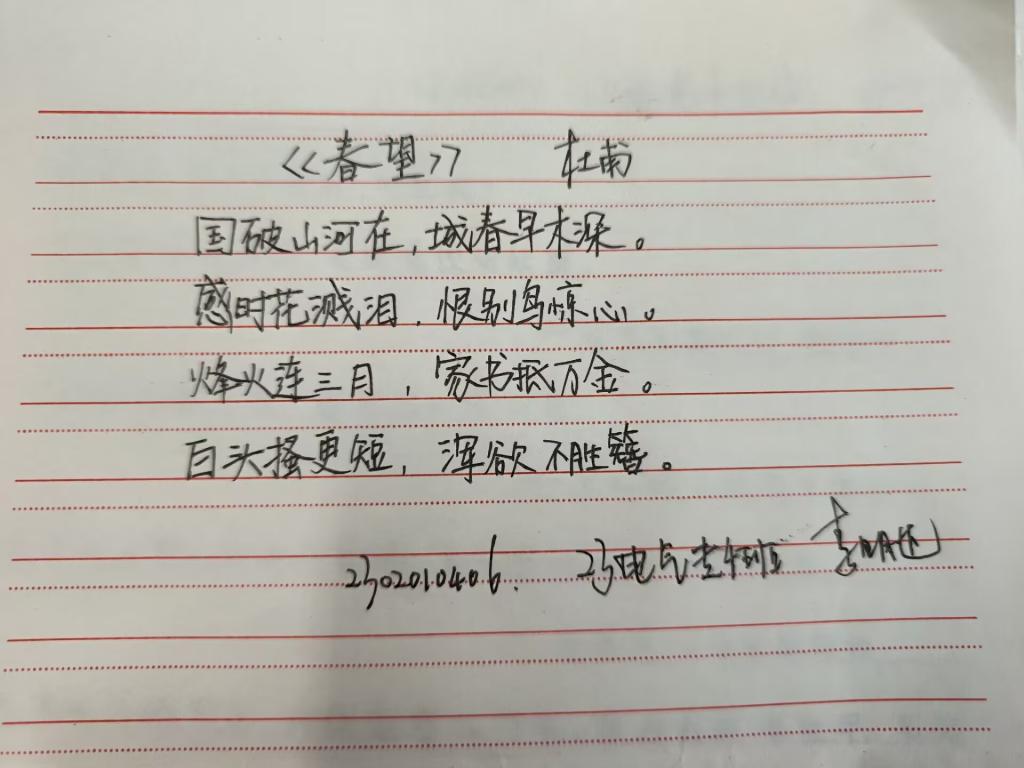 《春望》 杜甫
国破山河在，城春早木深。
感时花溅泪，恨别鸟惊心。
烽火连三月，家书抵万金。
白头搔更短，浑欲不胜簪。
2302010406. 23电气 班